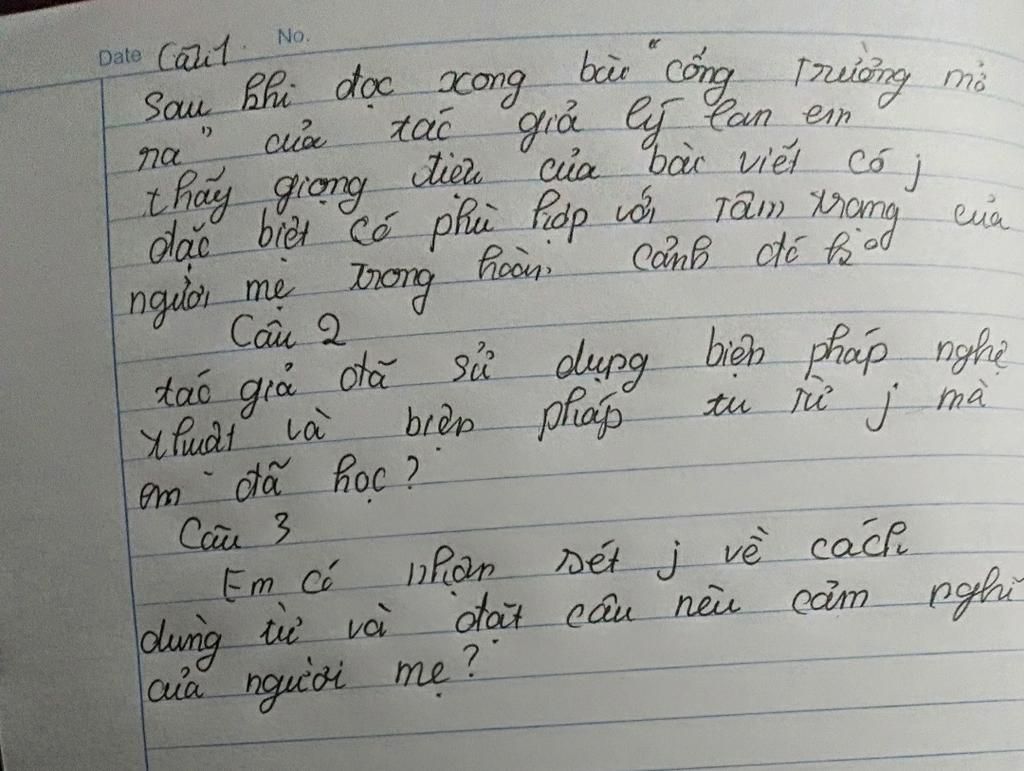 Date Câu 1. No.
Sau khi đọc xong bài "cổng trường mở
ra" của tác giả lý lan em
thấy giọng điệu của bài viết có j
đặc biệt có phù hợp với tâm trạng của
người mẹ trong hoàn cảnh đó ko
Câu 2
tác giả đã sử dụng biện pháp nghệ
thuật và biện pháp tu từ j mà
em đã học?
Câu 3
Em có nhận xét j về cách
dùng từ và đặt câu nêu cảm nghĩ
của người mẹ?